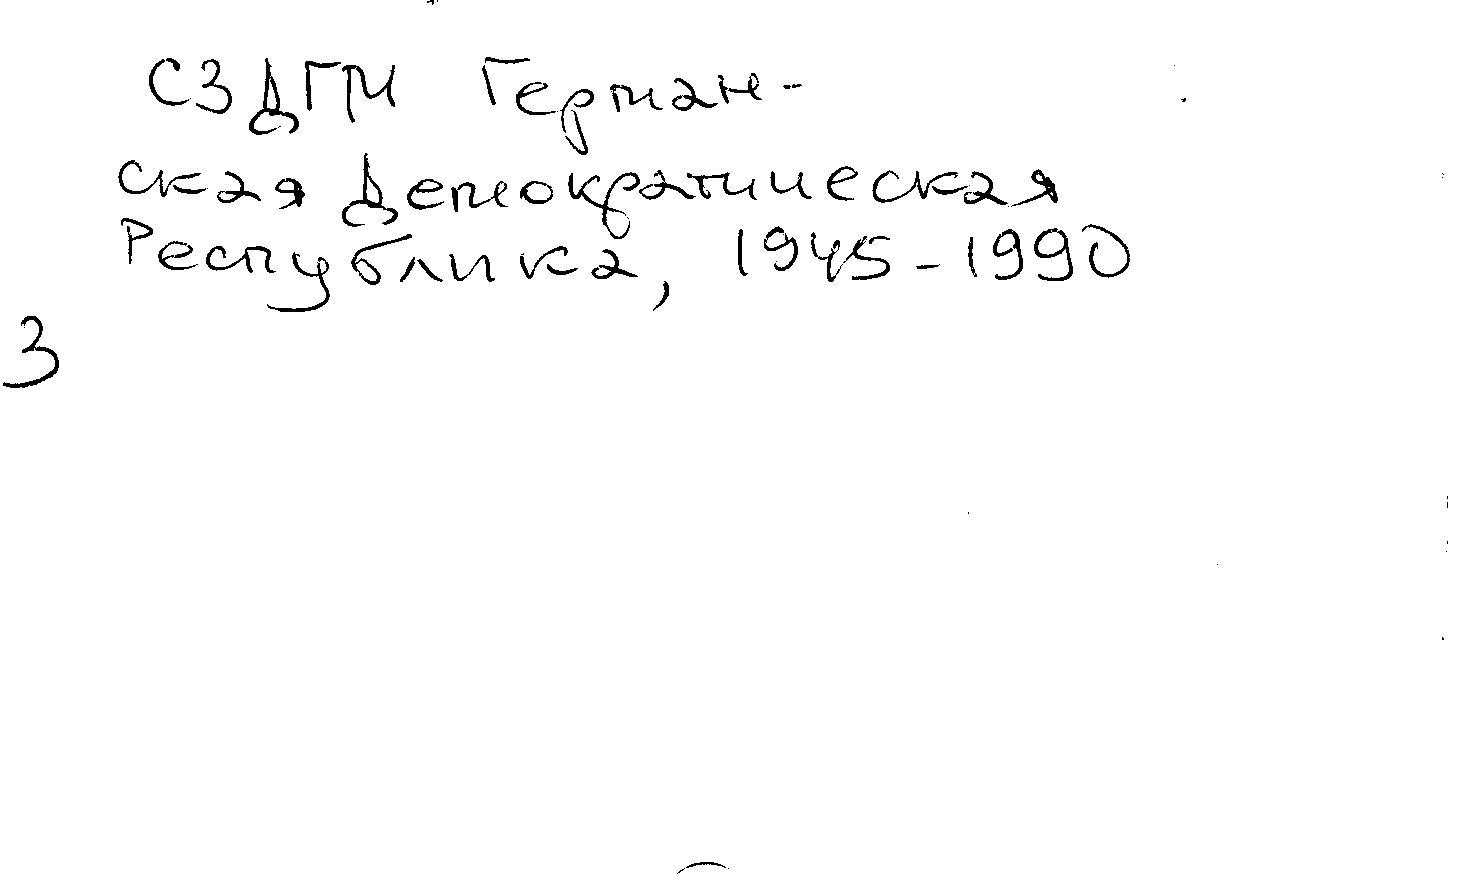 СЗДГМ Герман-
ская Демократическая
Республика, 1945-1990
3